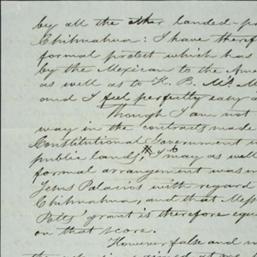 by all the other landed-
Chihuahua: I have theref
formal protest which has
by the Mexicans to the Ame
as well as to
and I feel perfectly easy
Though I am not
way in the contracts made
Constitutional Government
public lands, I may as well
formal arrangement was m
Jesus Palacios with regard
Chihuahua, and that Mess
grant is therefore equ
on that score.
However false and